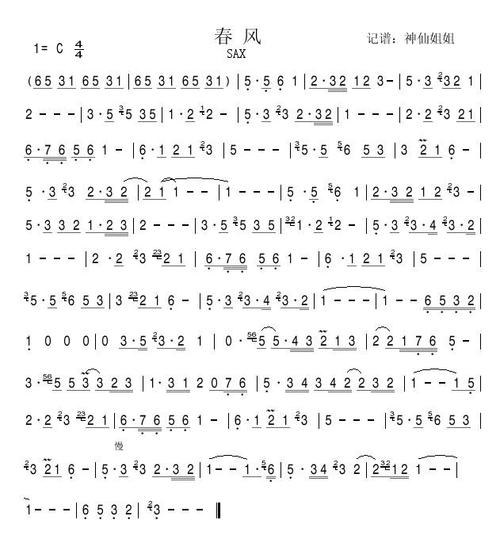 春 风
1= C 4/4
SAX
记谱：神仙姐姐
(65 31 65 31|65 31 65 31)|5·5 6 1|2·32 12 3-|5·3 2332 1|
2---|3·5 35 35|1·2 12-|5·3 23 2·31|2·2 23 21|
6·76 56 1-|6·1 21 23|5---|35·5 56 53|3 21 6-|
5·3 23 2·32|2 11--|1---|5·5 56 1|2·32 12 3-|
5·3 32 1·23|2---|3·5 35 35|321·2 12-|5·23 23·4 23·2|
1---|2·2 23 2321|6·76 56 1-|6·1 21 23|5---|
35·5 56 53|3 21 6-|5·3 23·4 23·2|1---|1--6532|
1 0 0 0|0 3·5 23·2 1|0·565 5·43 213|2 2176 5-|
3·565 53323|1·31 2076|5·3 434 2232|1---|1--15|
2·2 23 2321|6·76 56 1-|6·1 21 23|5---|35·5 56 53|
慢
23 21 6-|5·3 23 2·32|1--1·56|5·34 23 2|23212 1--|
1---|6532|23---‖